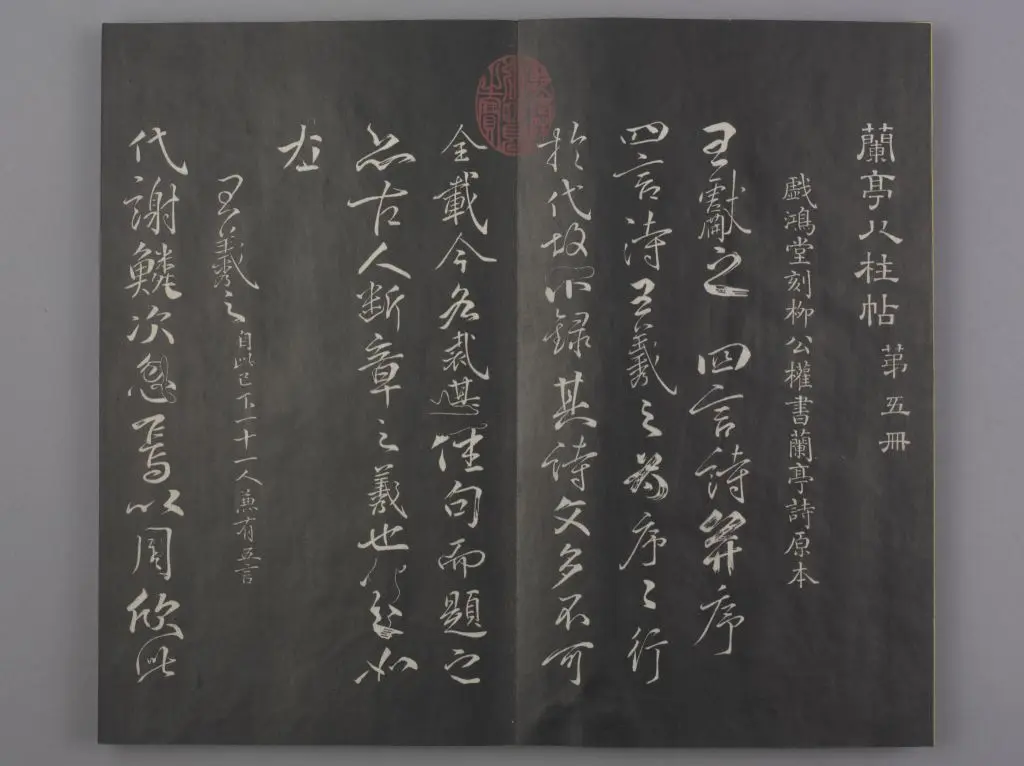 蘭亭八柱帖 第五冊
戲鴻堂刻柳公權書蘭亭詩原本
王獻之 四言詩并序
四言詩王羲之為序〻行
於代故不録其詩文多不可
全載今各裁佳句而題之
亦古人斷章之義也如
左
王羲之 自此已下一十一人兼有五言
代謝鱗次忽焉以周欣此